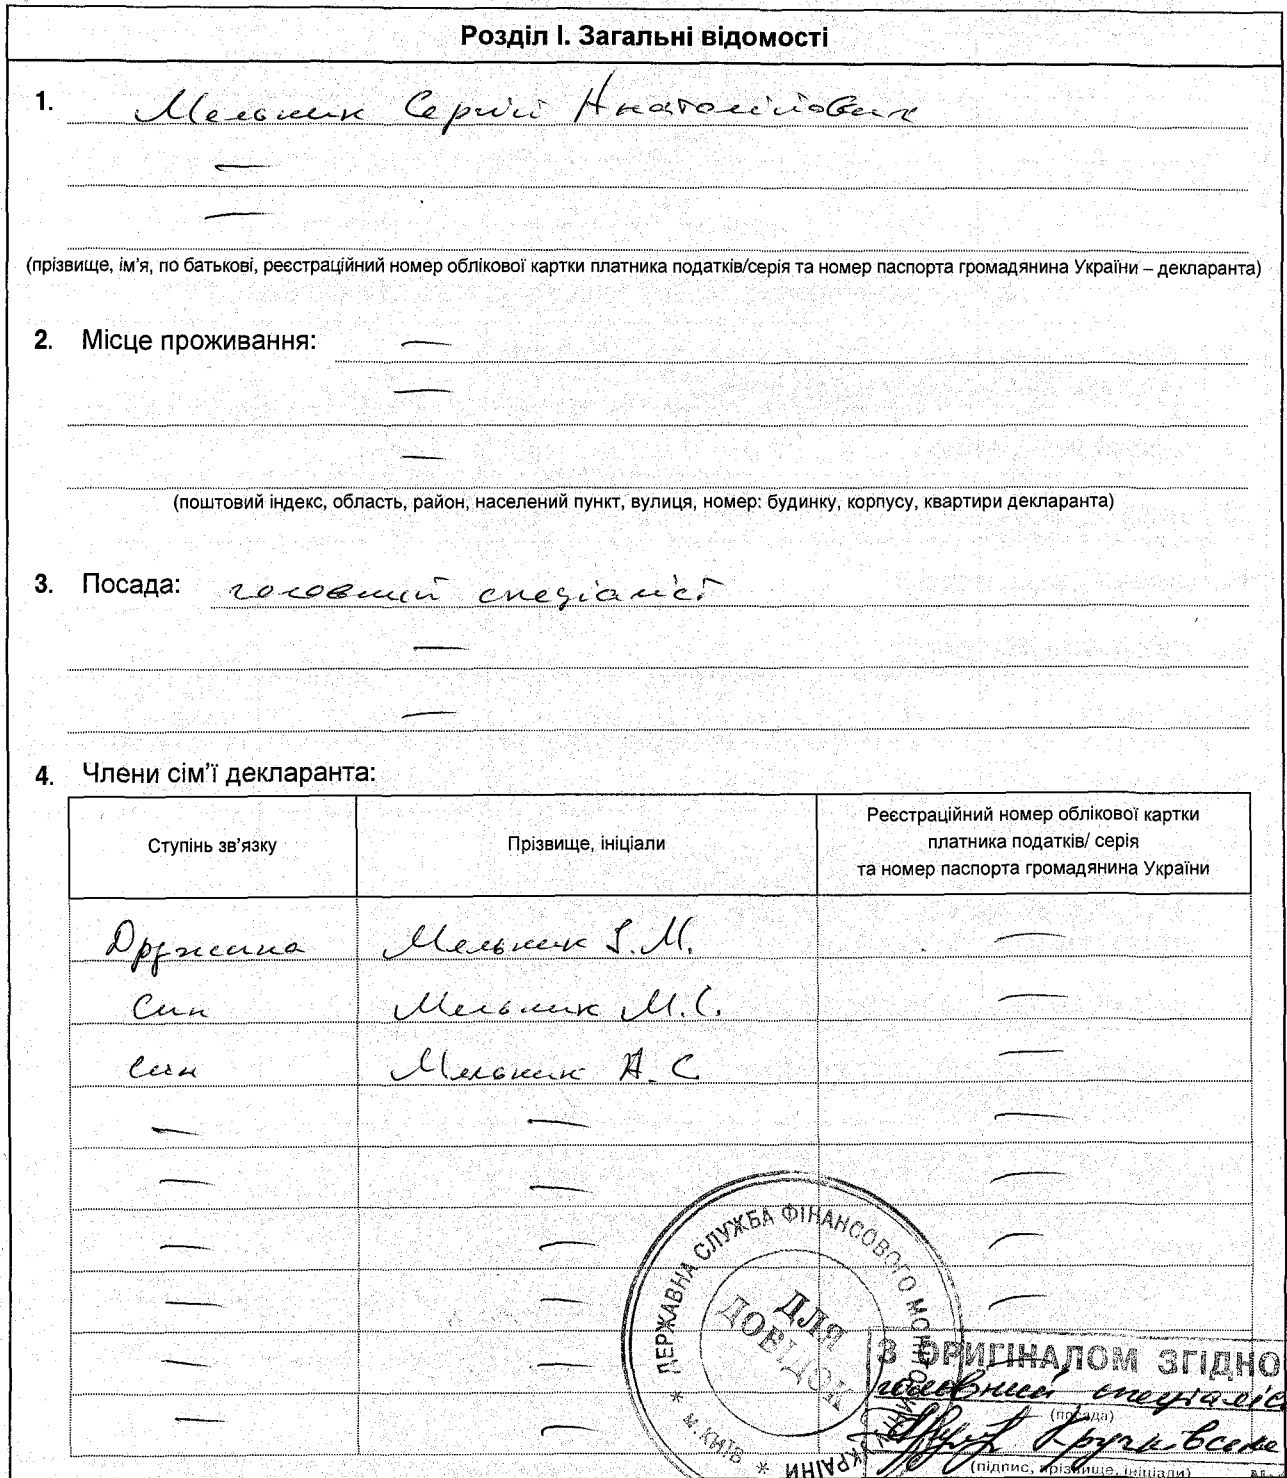 Розділ І. Загальні відомості
1. Мельник Сергій Анатолійович
—
—
(прізвище, ім’я, по батькові, реєстраційний номер облікової картки платника податків/серія та номер паспорта громадянина України – декларанта)
2. Місце проживання: —
—
—
(поштовий індекс, область, район, населений пункт, вулиця, номер: будинку, корпусу, квартири декларанта)
3. Посада: головний спеціаліст
—
—
4. Члени сім’ї декларанта:
Ступінь зв’язку
Прізвище, ініціали
Реєстраційний номер облікової картки
платника податків/ серія
та номер паспорта громадянина України
Дружина Мельник І.М. —
Син Мельник М.С. —
Син Мельник А.С. —
— — —
— — —
— — —
— — —
— — —
— —
ДЕРЖАВНА СЛУЖБА ФІНАНСОВОГО МОНІТОРИНГУ УКРАЇНИ
* м.КИЇВ *
ДЛЯ
ДОВІДОК
З ОРИГІНАЛОМ ЗГІДНО
головний спеціаліс
(посада)
(підпис, прізвище, ініціали)